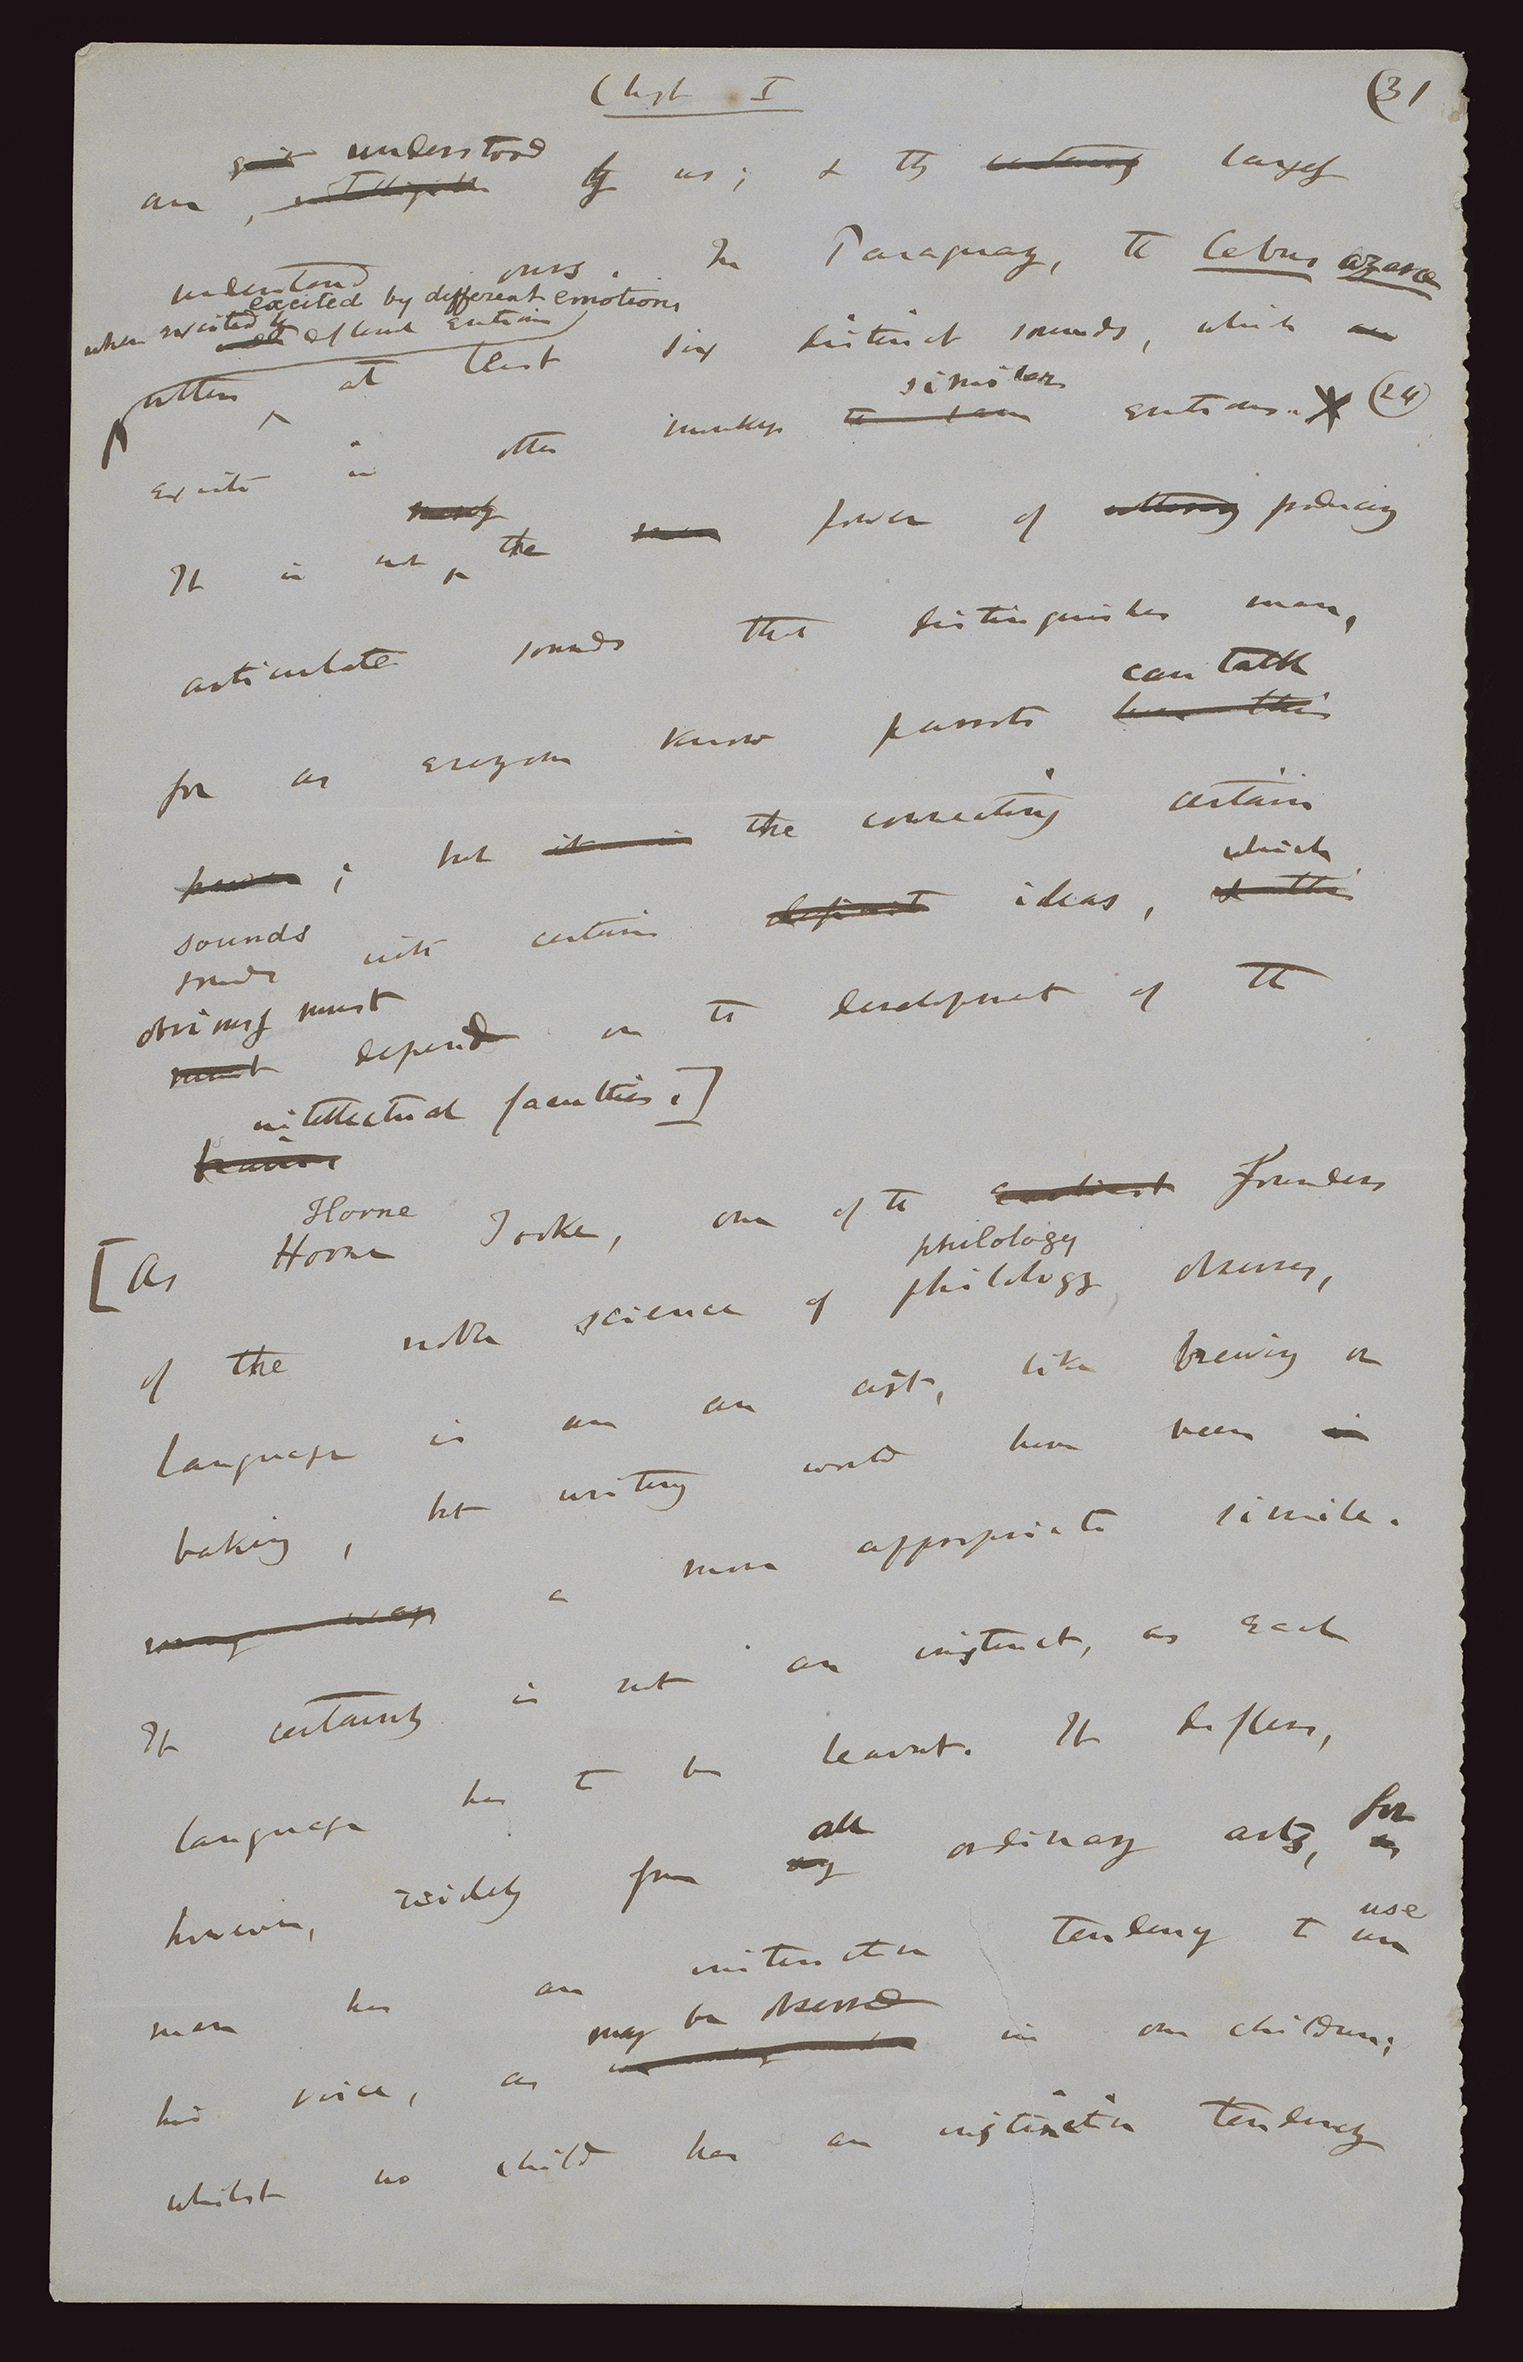 Chapt I
(31
understood
are by us; & they largely
understand ours. In Paraguay, the Cebus azarae
excited by different emotions
when excited by
utters at least six distinct sounds, which
similar
excite in other monkeys emotions. (24)
It is not the power of producing
articulate sounds that distinguishes man,
can talk
for as everyone knows parrots
power; but it is the connecting certain
which
sounds
sounds with certain definite ideas, & this
obviously must
must depend on the development of the
intellectual faculties.]
brain
Horne
[As Horne Tooke, one of the earliest Founders
philology
of the noble science of philology observes,
language is an an art, like brewing or
baking, but writing would have been in
a more appropriate simile.
It certainly is not an instinct, as each
language has to be learnt. It differs,
all for
however, widely from any ordinary arts, as
use
man has an instinctive tendency to use
may be observed
his voice, as in our children;
whilst no child has an instinctive tendency